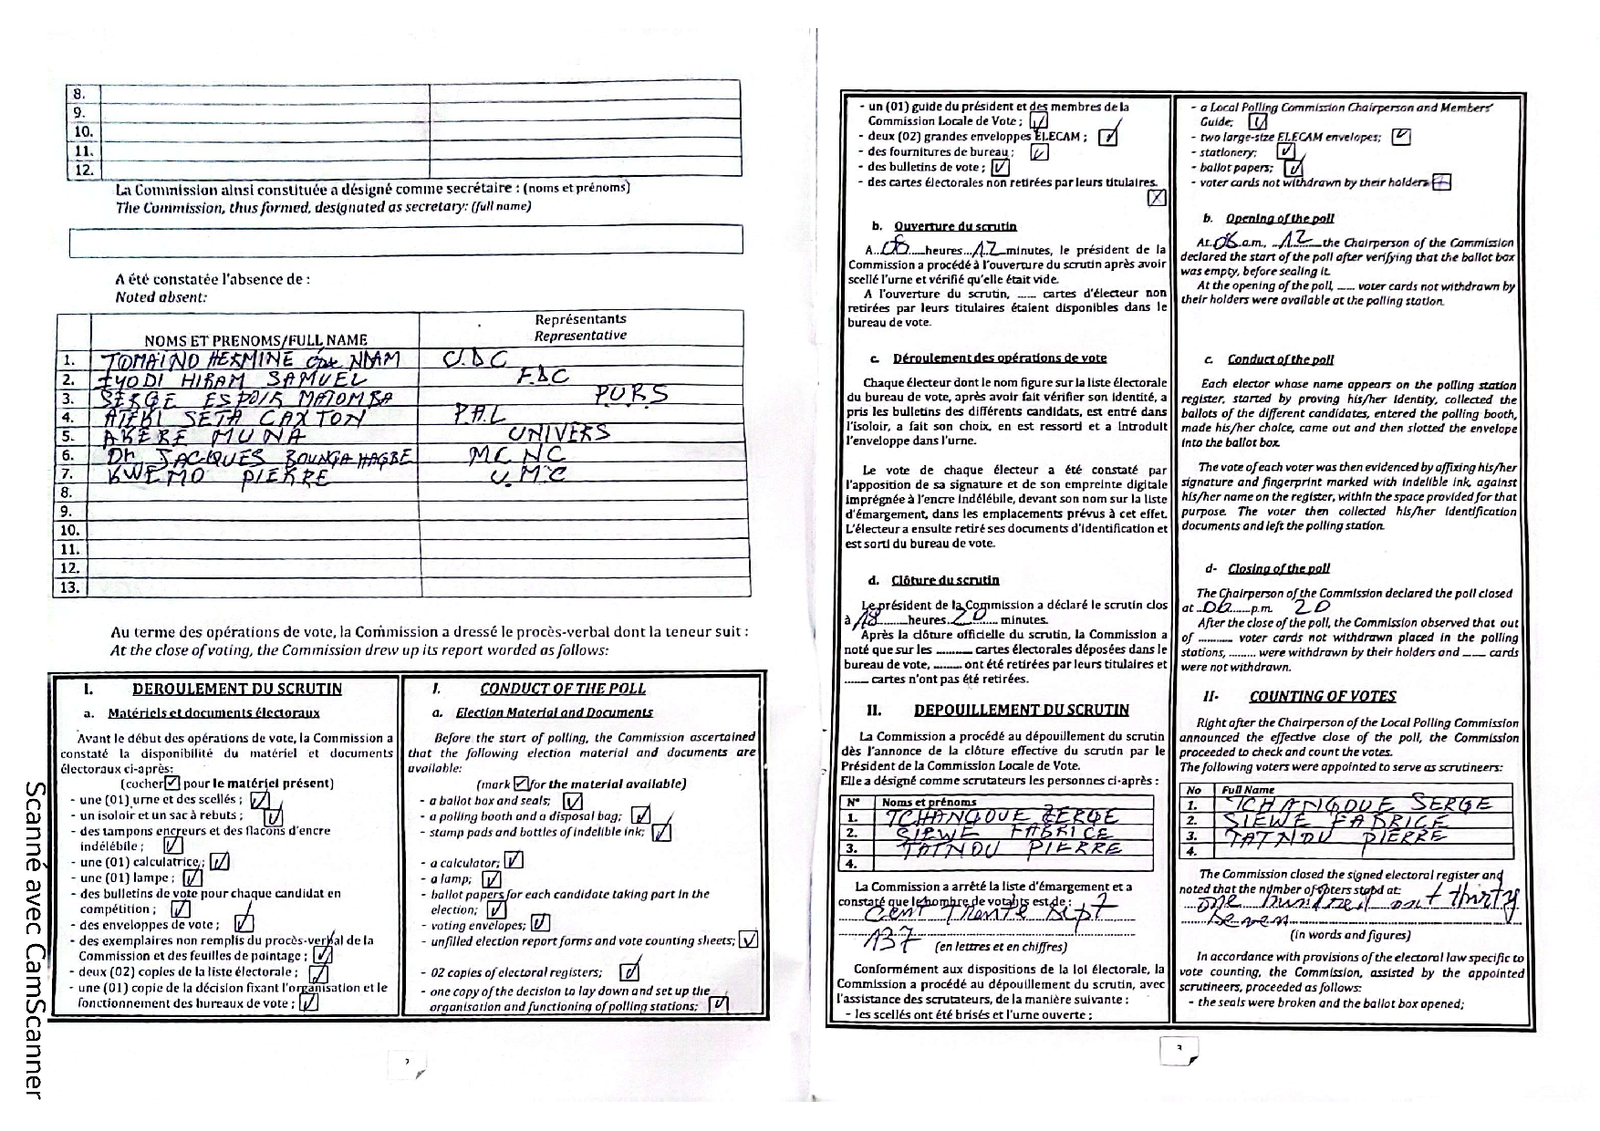 8.
9.
10.
11.
12.
La Commission ainsi constituée a désigné comme secrétaire : (noms et prénoms)
The Commission, thus formed, designated as secretary: (full name)
A été constatée l'absence de :
Noted absent:
NOMS ET PRENOMS/FULL NAME
Représentants
Representative
1. TOMAINO HERMINE épse NDAM U.D.C
2. IYODI HIRAM SAMUEL F.D.C
3. SERGE ESPOIR MATOMBA P.U.R.S
4. ATEKI SETA CAXTON P.A.L
5. AKERE MUNA UNIVERS
6. Dr JACQUES BOUNGA HAGBE M.C.N.C
7. KWEMO PIERRE U.M.C
8.
9.
10.
11.
12.
13.
Au terme des opérations de vote, la Commission a dressé le procès-verbal dont la teneur suit :
At the close of voting, the Commission drew up its report worded as follows:
I. DEROULEMENT DU SCRUTIN
a. Matériels et documents électoraux
Avant le début des opérations de vote, la Commission a
constaté la disponibilité du matériel et documents
électoraux ci-après:
(cocher pour le matériel présent)
- une (01) urne et des scellés ;
- un isoloir et un sac à rebuts ;
- des tampons encreurs et des flacons d'encre
indélébile ;
- une (01) calculatrice ;
- une (01) lampe ;
- des bulletins de vote pour chaque candidat en
compétition ;
- des enveloppes de vote ;
- des exemplaires non remplis du procès-verbal de la
Commission et des feuilles de pointage ;
- deux (02) copies de la liste électorale ;
- une (01) copie de la décision fixant l'organisation et le
fonctionnement des bureaux de vote ;
I. CONDUCT OF THE POLL
a. Election Material and Documents
Before the start of polling, the Commission ascertained
that the following election material and documents are
available:
(mark for the material available)
- a ballot box and seals;
- a polling booth and a disposal bag;
- stamp pads and bottles of indelible ink;
- a calculator;
- a lamp;
- ballot papers for each candidate taking part in the
election;
- voting envelopes;
- unfilled election report forms and vote counting sheets;
- 02 copies of electoral registers;
- one copy of the decision to lay down and set up the
organisation and functioning of polling stations;
2
Scanné avec CamScanner
- un (01) guide du président et des membres de la
Commission Locale de Vote ;
- deux (02) grandes enveloppes ELECAM ;
- des fournitures de bureau ;
- des bulletins de vote ;
- des cartes électorales non retirées par leurs titulaires.
b. Ouverture du scrutin
A 06 heures 12 minutes, le président de la
Commission a procédé à l'ouverture du scrutin après avoir
scellé l'urne et vérifié qu'elle était vide.
A l'ouverture du scrutin, ...... cartes d'électeur non
retirées par leurs titulaires étaient disponibles dans le
bureau de vote.
c. Déroulement des opérations de vote
Chaque électeur dont le nom figure sur la liste électorale
du bureau de vote, après avoir fait vérifier son identité, a
pris les bulletins des différents candidats, est entré dans
l'isoloir, a fait son choix, en est ressorti et a introduit
l'enveloppe dans l'urne.
Le vote de chaque électeur a été constaté par
l'apposition de sa signature et de son empreinte digitale
imprégnée à l'encre indélébile, devant son nom sur la liste
d'émargement, dans les emplacements prévus à cet effet.
L'électeur a ensuite retiré ses documents d'identification et
est sorti du bureau de vote.
d. Clôture du scrutin
Le président de la Commission a déclaré le scrutin clos
à 18 heures 20 minutes.
Après la clôture officielle du scrutin, la Commission a
noté que sur les .......... cartes électorales déposées dans le
bureau de vote, ........ ont été retirées par leurs titulaires et
....... cartes n'ont pas été retirées.
II. DEPOUILLEMENT DU SCRUTIN
La Commission a procédé au dépouillement du scrutin
dès l'annonce de la clôture effective du scrutin par le
Président de la Commission Locale de Vote.
Elle a désigné comme scrutateurs les personnes ci-après :
N° Noms et prénoms
1. TCHANGOUE SERGE
2. SIEWE FABRICE
3. TATNOU PIERRE
4.
La Commission a arrêté la liste d'émargement et a
constaté que le nombre de votants est de :
Cent Trente sept
137 (en lettres et en chiffres)
Conformément aux dispositions de la loi électorale, la
Commission a procédé au dépouillement du scrutin, avec
l'assistance des scrutateurs, de la manière suivante :
- les scellés ont été brisés et l'urne ouverte ;
- a Local Polling Commission Chairperson and Members'
Guide;
- two large-size ELECAM envelopes;
- stationery;
- ballot papers;
- voter cards not withdrawn by their holders
b. Opening of the poll
At 06 a.m., 12 the Chairperson of the Commission
declared the start of the poll after verifying that the ballot box
was empty, before sealing it.
At the opening of the poll, ..... voter cards not withdrawn by
their holders were available at the polling station.
c. Conduct of the poll
Each elector whose name appears on the polling station
register, started by proving his/her identity, collected the
ballots of the different candidates, entered the polling booth,
made his/her choice, came out and then slotted the envelope
into the ballot box.
The vote of each voter was then evidenced by affixing his/her
signature and fingerprint marked with indelible ink, against
his/her name on the register, within the space provided for that
purpose. The voter then collected his/her identification
documents and left the polling station.
d- Closing of the poll
The Chairperson of the Commission declared the poll closed
at 06 p.m. 20
After the close of the poll, the Commission observed that out
of .......... voter cards not withdrawn placed in the polling
stations, ........ were withdrawn by their holders and ...... cards
were not withdrawn.
II- COUNTING OF VOTES
Right after the Chairperson of the Local Polling Commission
announced the effective close of the poll, the Commission
proceeded to check and count the votes.
The following voters were appointed to serve as scrutineers:
No Full Name
1. TCHANGOUE SERGE
2. SIEWE FABRICE
3. TATNOU PIERRE
4.
The Commission closed the signed electoral register and
noted that the number of voters stood at:
one hundred and thirty
seven
(in words and figures)
In accordance with provisions of the electoral law specific to
vote counting, the Commission, assisted by the appointed
scrutineers, proceeded as follows:
- the seals were broken and the ballot box opened;
3